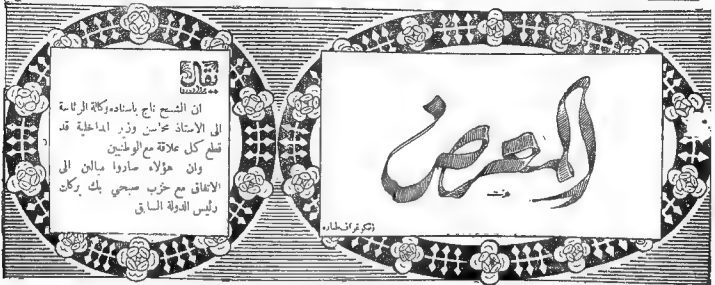 المعرض
يقال
ان الشيخ تاج باسناده وكالة الرئاسة
الى الاستاذ محاسن وزير الداخلية قد
قطع كل علاقة مع الوطنيين
وان هؤلاء صاروا ميالين الى
الاتفاق مع حزب صبحي بك بركات
رئيس الدولة السابق
زنكوغراف طباره